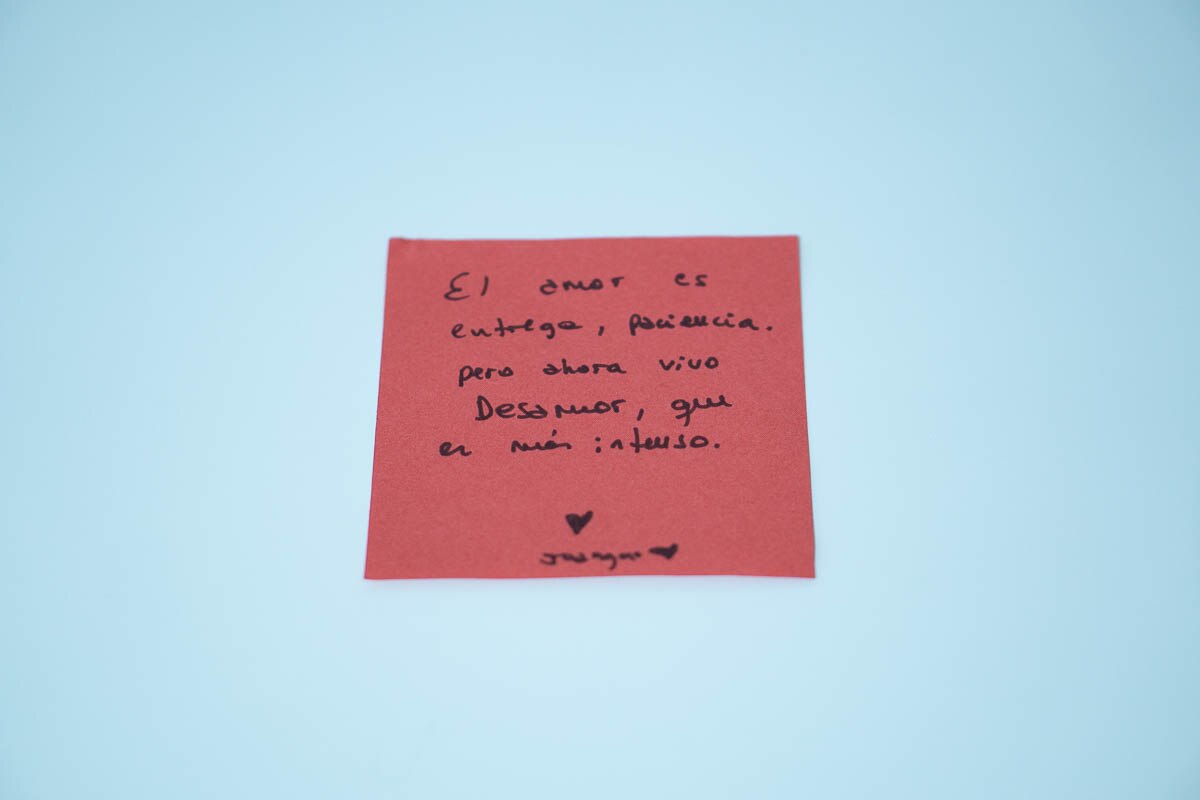 El amor es
entrega, paciencia.
pero ahora vivo
Desamor, que
es más intenso.